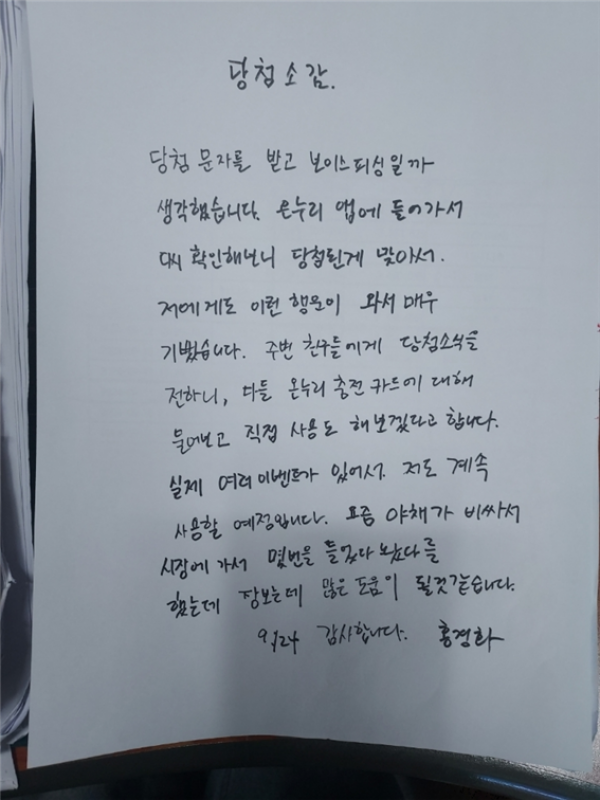 당첨소감.
당첨 문자를 받고 보이스피싱일까
생각했습니다. 온누리 앱에 들어가서
다시 확인해보니 당첨된게 맞아서.
저에게도 이런 행운이 와서 매우
기뻤습니다. 주변 친구들에게 당첨소식을
전하니, 다들 온누리 충전카드에 대해
물어보고 직접 사용도 해보겠다고 합니다.
실제 여러이벤트가 있어서. 저도 계속
사용할 예정입니다. 요즘 야채가 비싸서
시장에 가서 몇번을 들었다 놨다를
했는데 장보는데 많은 도움이 될것같습니다.
9/24 감사합니다. 홍경화